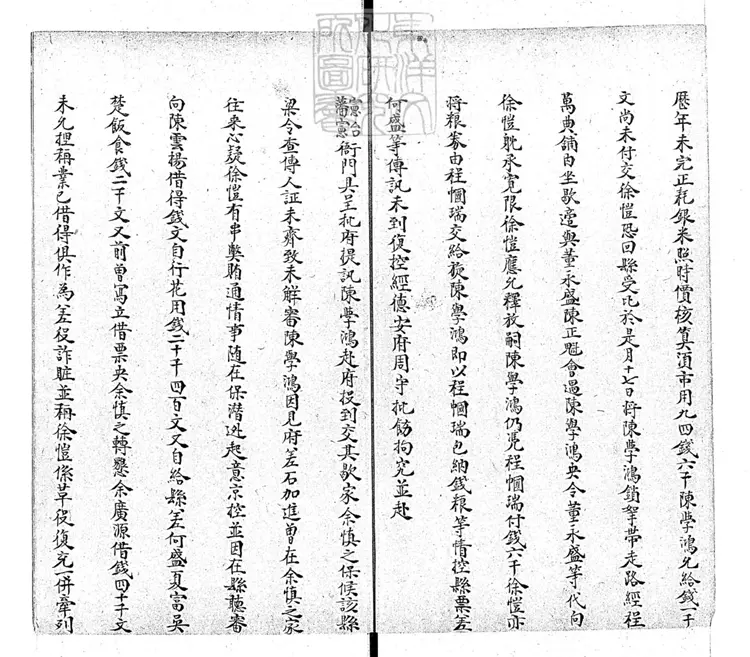 歷年未完正耗銀米照時價核算須市用九四錢六千陳學鴻允給錢一千
文尚未付交徐愷恐回縣受比於是月十七日將陳學鴻鎖拏帶走路經程
萬典舖內坐歇適與董永盛陳正魁會過陳學鴻央令董永盛等代向
徐愷躭承寬限徐愷應允釋放嗣陳學鴻仍凴程幗瑞付錢六千徐愷亦
將粮劵由程幗瑞交給旋陳學鴻即以程幗瑞包納錢粮等情控縣票差
何盛等傳訊未到復控經德安府周守批飭拘究並赴
憲治
藩憲
衙門具呈批府提訊陳學鴻赴府投到交其歇家余慎之保候該縣
梁令查傳人証未齊致未觧審陳學鴻因見府差石加進曽在余慎之家
往來心疑徐愷有串弊賄通情事随在保潛迯起意京控並因在縣聽審
向陳雲楊借得錢文自行花用錢二十千四百文又自給縣差何盛夏富吳
楚飯食錢二千文又前曽寫立借票央余慎之轉懇余廣源借錢四十千文
未允捏稱業已借得俱作為差役詐賍並稱徐愷係革役復充一併牽列